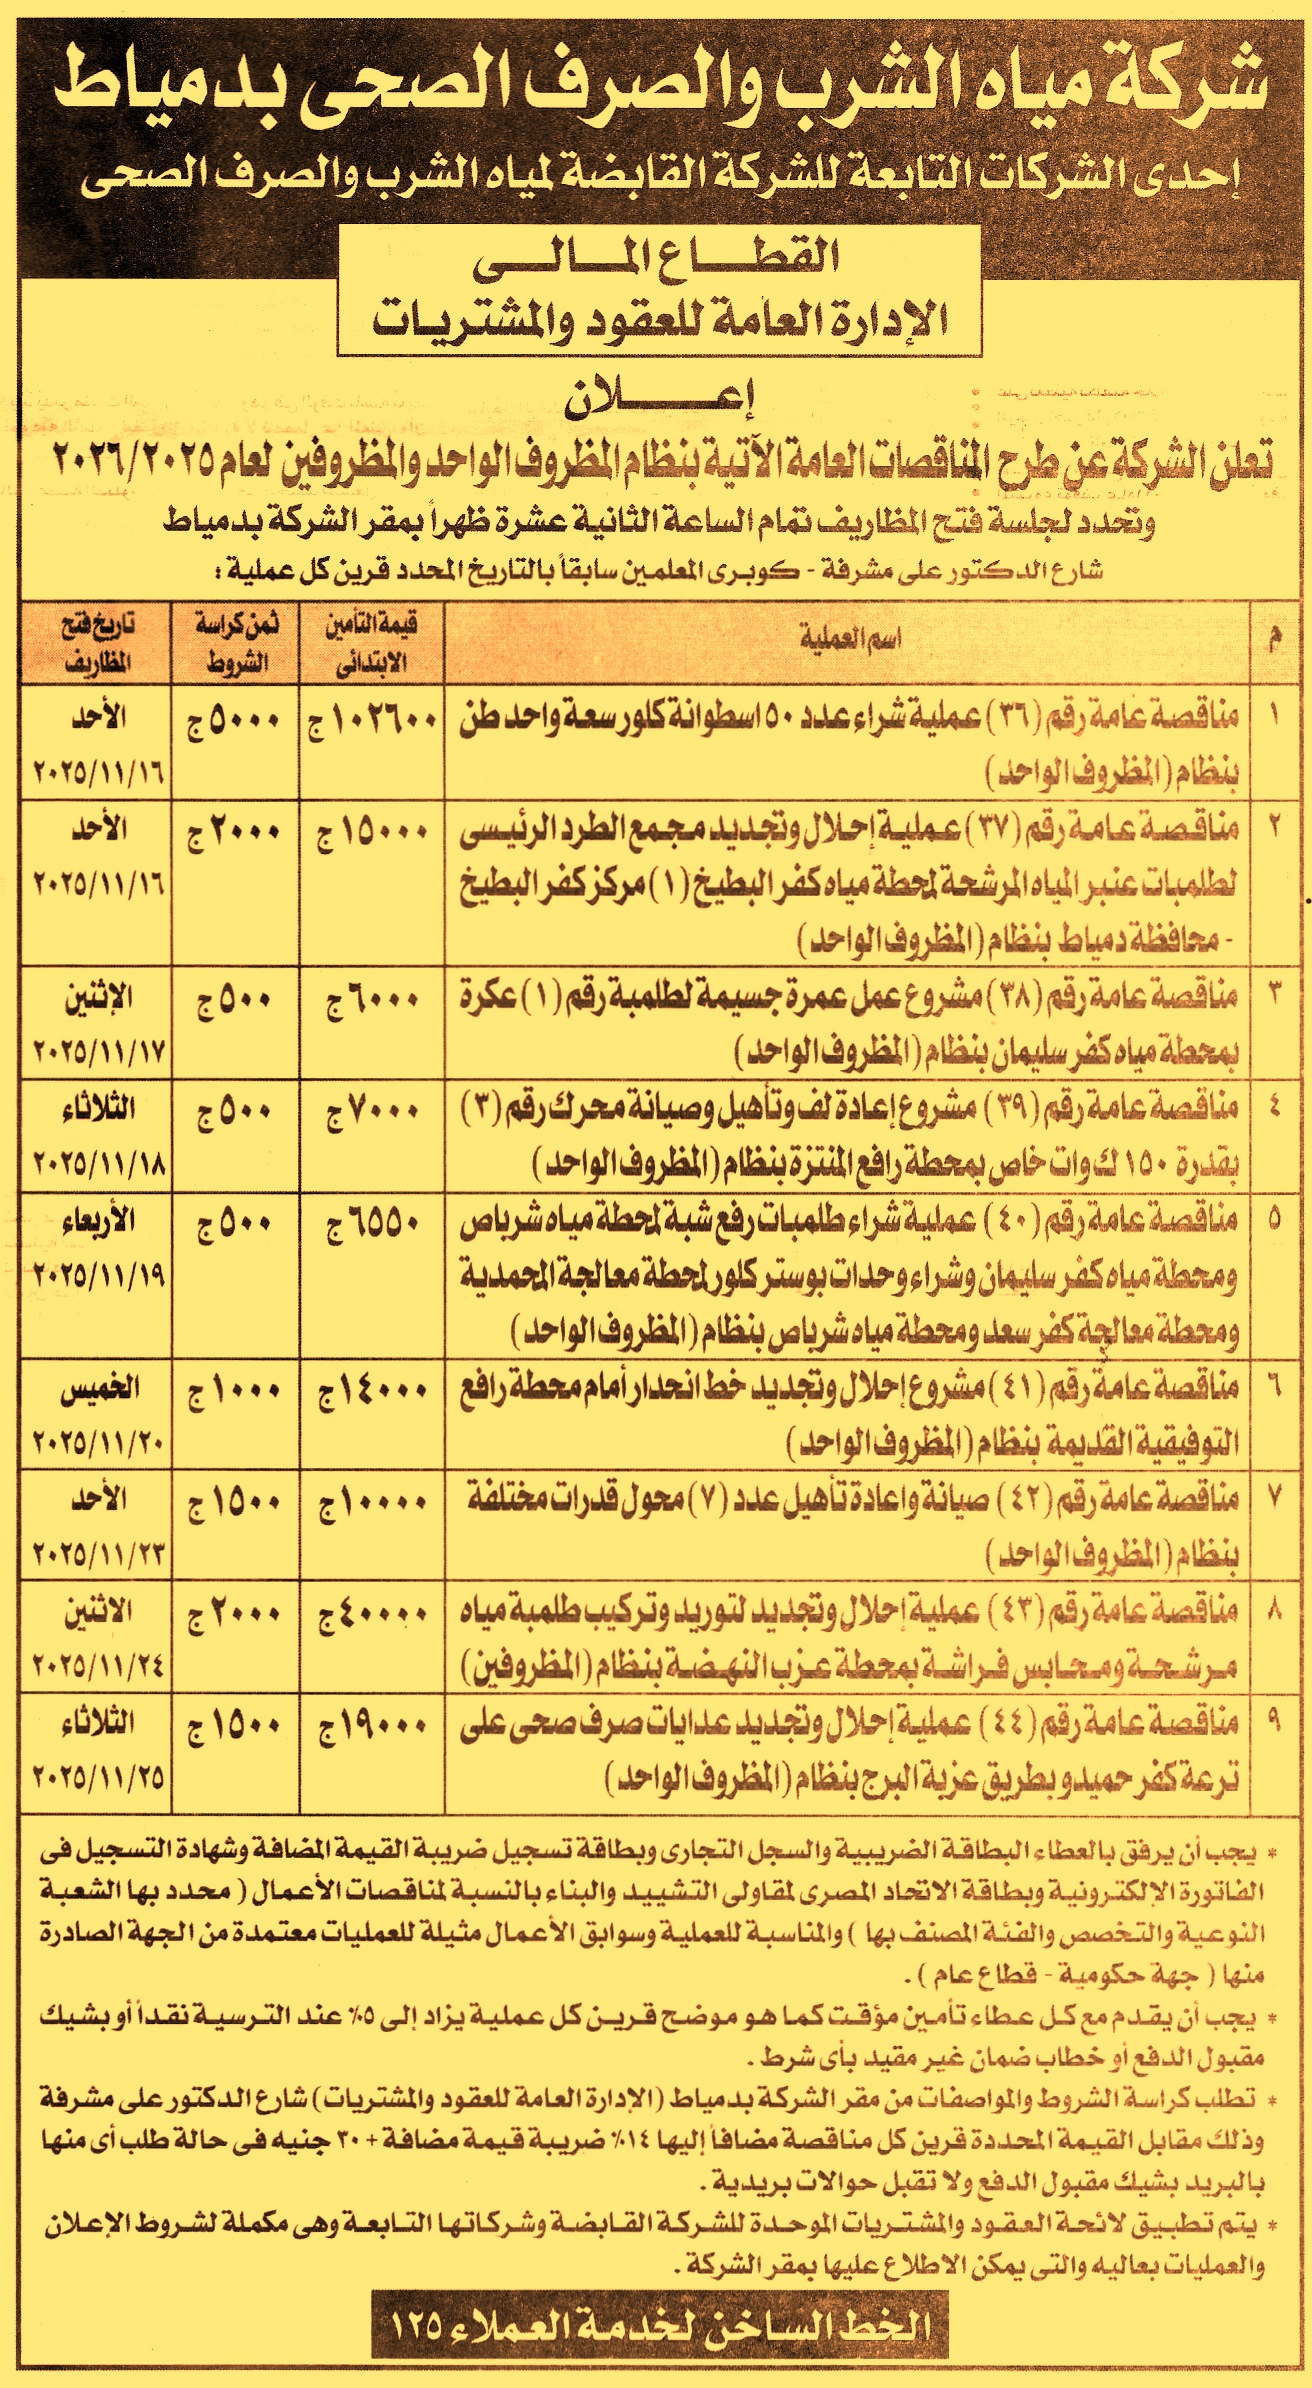 شركة مياه الشرب والصرف الصحى بدمياط
إحدى الشركات التابعة للشركة القابضة لمياه الشرب والصرف الصحى
القطاع المالى
الإدارة العامة للعقود والمشتريات
إعلان
تعلن الشركة عن طرح المناقصات العامة الآتية بنظام المظروف الواحد والمظروفين لعام ٢٠٢٥/٢٠٢٦
وتحدد لجلسة فتح المظاريف تمام الساعة الثانية عشرة ظهراً بمقر الشركة بدمياط
شارع الدكتور على مشرفة - كوبرى المعلمين سابقاً بالتاريخ المحدد قرين كل عملية :
م اسم العملية قيمة التأمين ثمن كراسة تاريخ فتح
الابتدائى الشروط المظاريف
١ مناقصة عامة رقم (٣٦) عملية شراء عدد ٥٠ اسطوانة كلور سعة واحد طن ١٠٢٦٠٠ ج ٥٠٠٠ ج الأحد
بنظام (المظروف الواحد) ٢٠٢٥/١١/١٦
٢ مناقصة عامة رقم (٣٧) عملية إحلال وتجديد مجمع الطرد الرئيسى ١٥٠٠٠ ج ٢٠٠٠ ج الأحد
لطلمبات عنبر المياه المرشحة لمحطة مياه كفر البطيخ (١) مركز كفر البطيخ ٢٠٢٥/١١/١٦
- محافظة دمياط بنظام (المظروف الواحد)
٣ مناقصة عامة رقم (٣٨) مشروع عمل عمرة جسيمة لطلمبة رقم (١) عكرة ٦٠٠٠ ج ٥٠٠ ج الإثنين
بمحطة مياه كفر سليمان بنظام (المظروف الواحد) ٢٠٢٥/١١/١٧
٤ مناقصة عامة رقم (٣٩) مشروع إعادة لف وتأهيل وصيانة محرك رقم (٣) ٧٠٠٠ ج ٥٠٠ ج الثلاثاء
بقدرة ١٥٠ ك وات خاص بمحطة رافع المنتزة بنظام (المظروف الواحد) ٢٠٢٥/١١/١٨
٥ مناقصة عامة رقم (٤٠) عملية شراء طلمبات رفع شبة لمحطة مياه شرباص ٦٥٥٠ ج ٥٠٠ ج الأربعاء
ومحطة مياه كفر سليمان وشراء وحدات بوستر كلور لمحطة معالجة المحمدية ٢٠٢٥/١١/١٩
ومحطة معالجة كفر سعد ومحطة مياه شرباص بنظام (المظروف الواحد)
٦ مناقصة عامة رقم (٤١) مشروع إحلال وتجديد خط انحدار أمام محطة رافع ١٤٠٠٠ ج ١٠٠٠ ج الخميس
التوفيقية القديمة بنظام (المظروف الواحد) ٢٠٢٥/١١/٢٠
٧ مناقصة عامة رقم (٤٢) صيانة واعادة تأهيل عدد (٧) محول قدرات مختلفة ١٠٠٠٠ ج ١٥٠٠ ج الأحد
بنظام (المظروف الواحد) ٢٠٢٥/١١/٢٣
٨ مناقصة عامة رقم (٤٣) عملية إحلال وتجديد لتوريد وتركيب طلمبة مياه ٤٠٠٠٠ ج ٢٠٠٠ ج الاثنين
مرشحة ومحابس فراشة بمحطة عزب النهضة بنظام (المظروفين) ٢٠٢٥/١١/٢٤
٩ مناقصة عامة رقم (٤٤) عملية إحلال وتجديد عدايات صرف صحى على ١٩٠٠٠ ج ١٥٠٠ ج الثلاثاء
ترعة كفر حميدو بطريق عزبة البرج بنظام (المظروف الواحد) ٢٠٢٥/١١/٢٥
* يجب أن يرفق بالعطاء البطاقة الضريبية والسجل التجارى وبطاقة تسجيل ضريبة القيمة المضافة وشهادة التسجيل فى
الفاتورة الإلكترونية وبطاقة الاتحاد المصرى لمقاولى التشييد والبناء بالنسبة لمناقصات الأعمال ( محدد بها الشعبة
النوعية والتخصص والفئة المصنف بها ) والمناسبة للعملية وسوابق الأعمال مثيلة للعمليات معتمدة من الجهة الصادرة
منها ( جهة حكومية - قطاع عام ) .
* يجب أن يقدم مع كل عطاء تأمين مؤقت كما هو موضح قرين كل عملية يزاد إلى ٥٪ عند الترسية نقداً أو بشيك
مقبول الدفع أو خطاب ضمان غير مقيد بأى شرط .
* تطلب كراسة الشروط والمواصفات من مقر الشركة بدمياط (الإدارة العامة للعقود والمشتريات) شارع الدكتور على مشرفة
وذلك مقابل القيمة المحددة قرين كل مناقصة مضافاً إليها ١٤٪ ضريبة قيمة مضافة + ٣٠ جنيه فى حالة طلب أى منها
بالبريد بشيك مقبول الدفع ولا تقبل حوالات بريدية .
* يتم تطبيق لائحة العقود والمشتريات الموحدة للشركة القابضة وشركاتها التابعة وهى مكملة لشروط الإعلان
والعمليات بعاليه والتى يمكن الاطلاع عليها بمقر الشركة .
الخط الساخن لخدمة العملاء ١٢٥